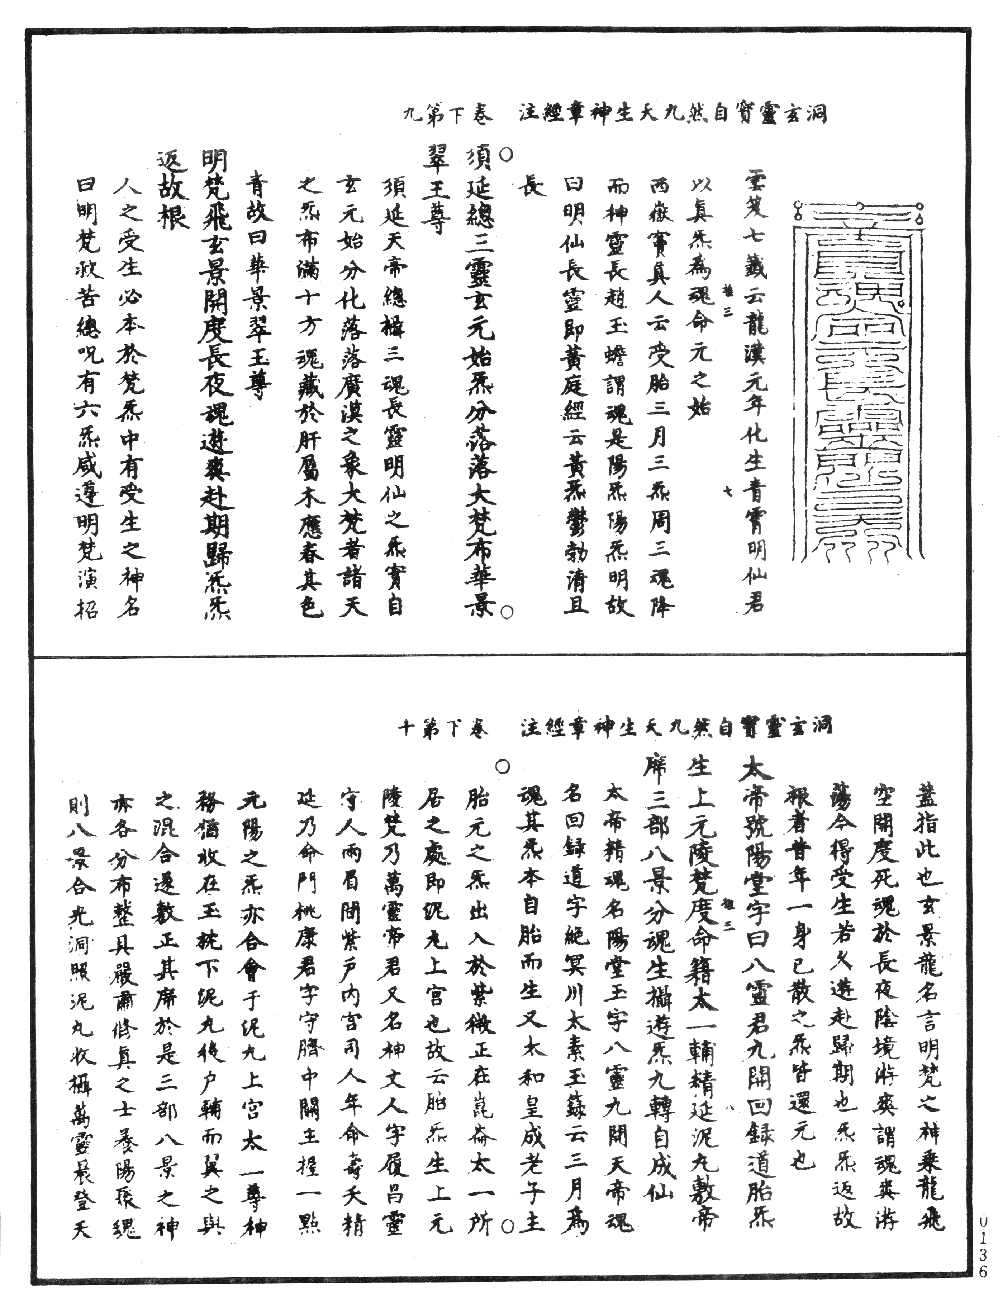 洞玄靈寶自然九天生神章經注　卷下第九
雲笈七籤云龍漢元年化生青霄明仙君
以真炁為魂命元之始
西嶽竇真人云受胎三月三炁周三魂降
而神靈長趙玉蟾謂魂是陽炁陽炁明故
曰明仙長靈即黃庭經云黃炁鬱勃清且
長
須延總三靈玄元始炁分落落大梵布華景
翠王尊
須延天帝總攝三魂長靈明仙之炁實自
玄元始分化落落廣漠之象大梵者諸天
之炁布滿十方魂藏於肝屬木應春其色
青故曰華景翠玉尊
明梵飛玄景開度長夜魂遊爽赴期歸炁炁
返故根
人之受生必本於梵炁中有受生之神名
曰明梵救苦總呪有六炁咸遵明梵演招
洞玄靈寶自然九天生神章經注　卷下第十
蓋指此也玄景龍名言明梵之神乘龍飛
空開度死魂於長夜陰境游爽謂魂爽游
蕩今得受生若久遊赴歸期也炁炁返故
根者昔年一身已散之炁皆還元也
太帝號陽堂字曰八靈君九開回錄道胎炁
生上元陵梵度命籍太一輔精延泥丸敷帝
席三部八景分魂生攝遊炁九轉自成仙
太帝精魂名陽堂玉字八靈九開天帝魂
名回錄道字絕冥川太素玉籙云三月為
魂其炁本自胎而生又太和皇成老子主
胎元之炁出入於紫微正在崑崙太一所
居之處即泥丸上宮也故云胎炁生上元
陵梵乃萬靈帝君又名神文人字履昌靈
守人兩眉間紫戶內宮司人年命壽夭精
延乃命門桃康君字守臍中關主握一點
元陽之炁亦合會于泥丸上宮太一尊神
務猷收在玉枕下泥丸後户輔而翼之與
之混合遷敷正其席於是三部八景之神
亦各分布整具嚴肅修真之士養陽張魂
則八景合光洞照泥丸收攝萬靈晨登天
0136